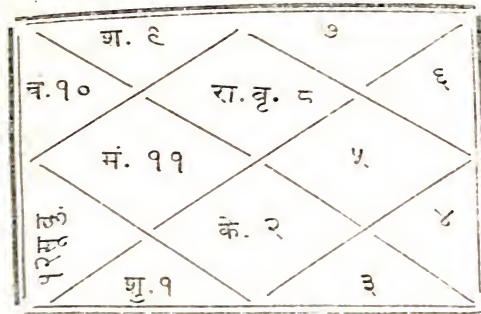 श. ९ ७
च. १० रा. वृ. ८ ६
मं. ११ ५
१२ सू बु. के. २ ४
शु. १ ३